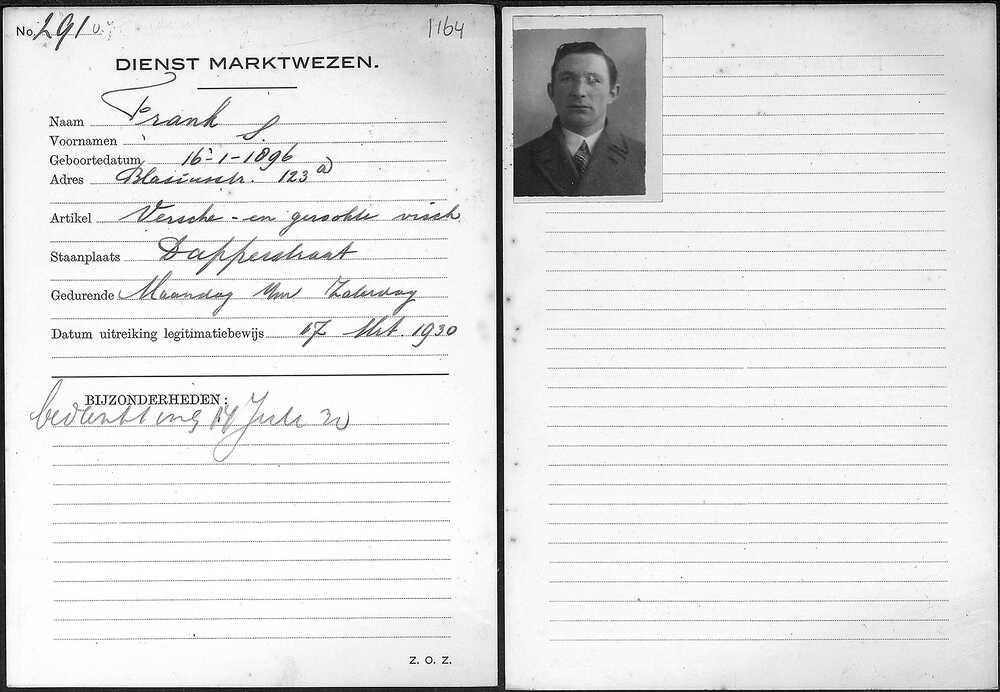 No. 291 U. 1164
DIENST MARKTWEZEN.
Naam Frank
Voornamen S.
Geboortedatum 16-1-1896
Adres Blasiusstr. 123 a
Artikel Versche- en gerookte visch
Staanplaats Dapperstraat
Gedurende Maandag t/m Zaterdag
Datum uitreiking legitimatiebewijs 17 Mrt. 1930
BIJZONDERHEDEN:
14 Juli 30
Z. O. Z.